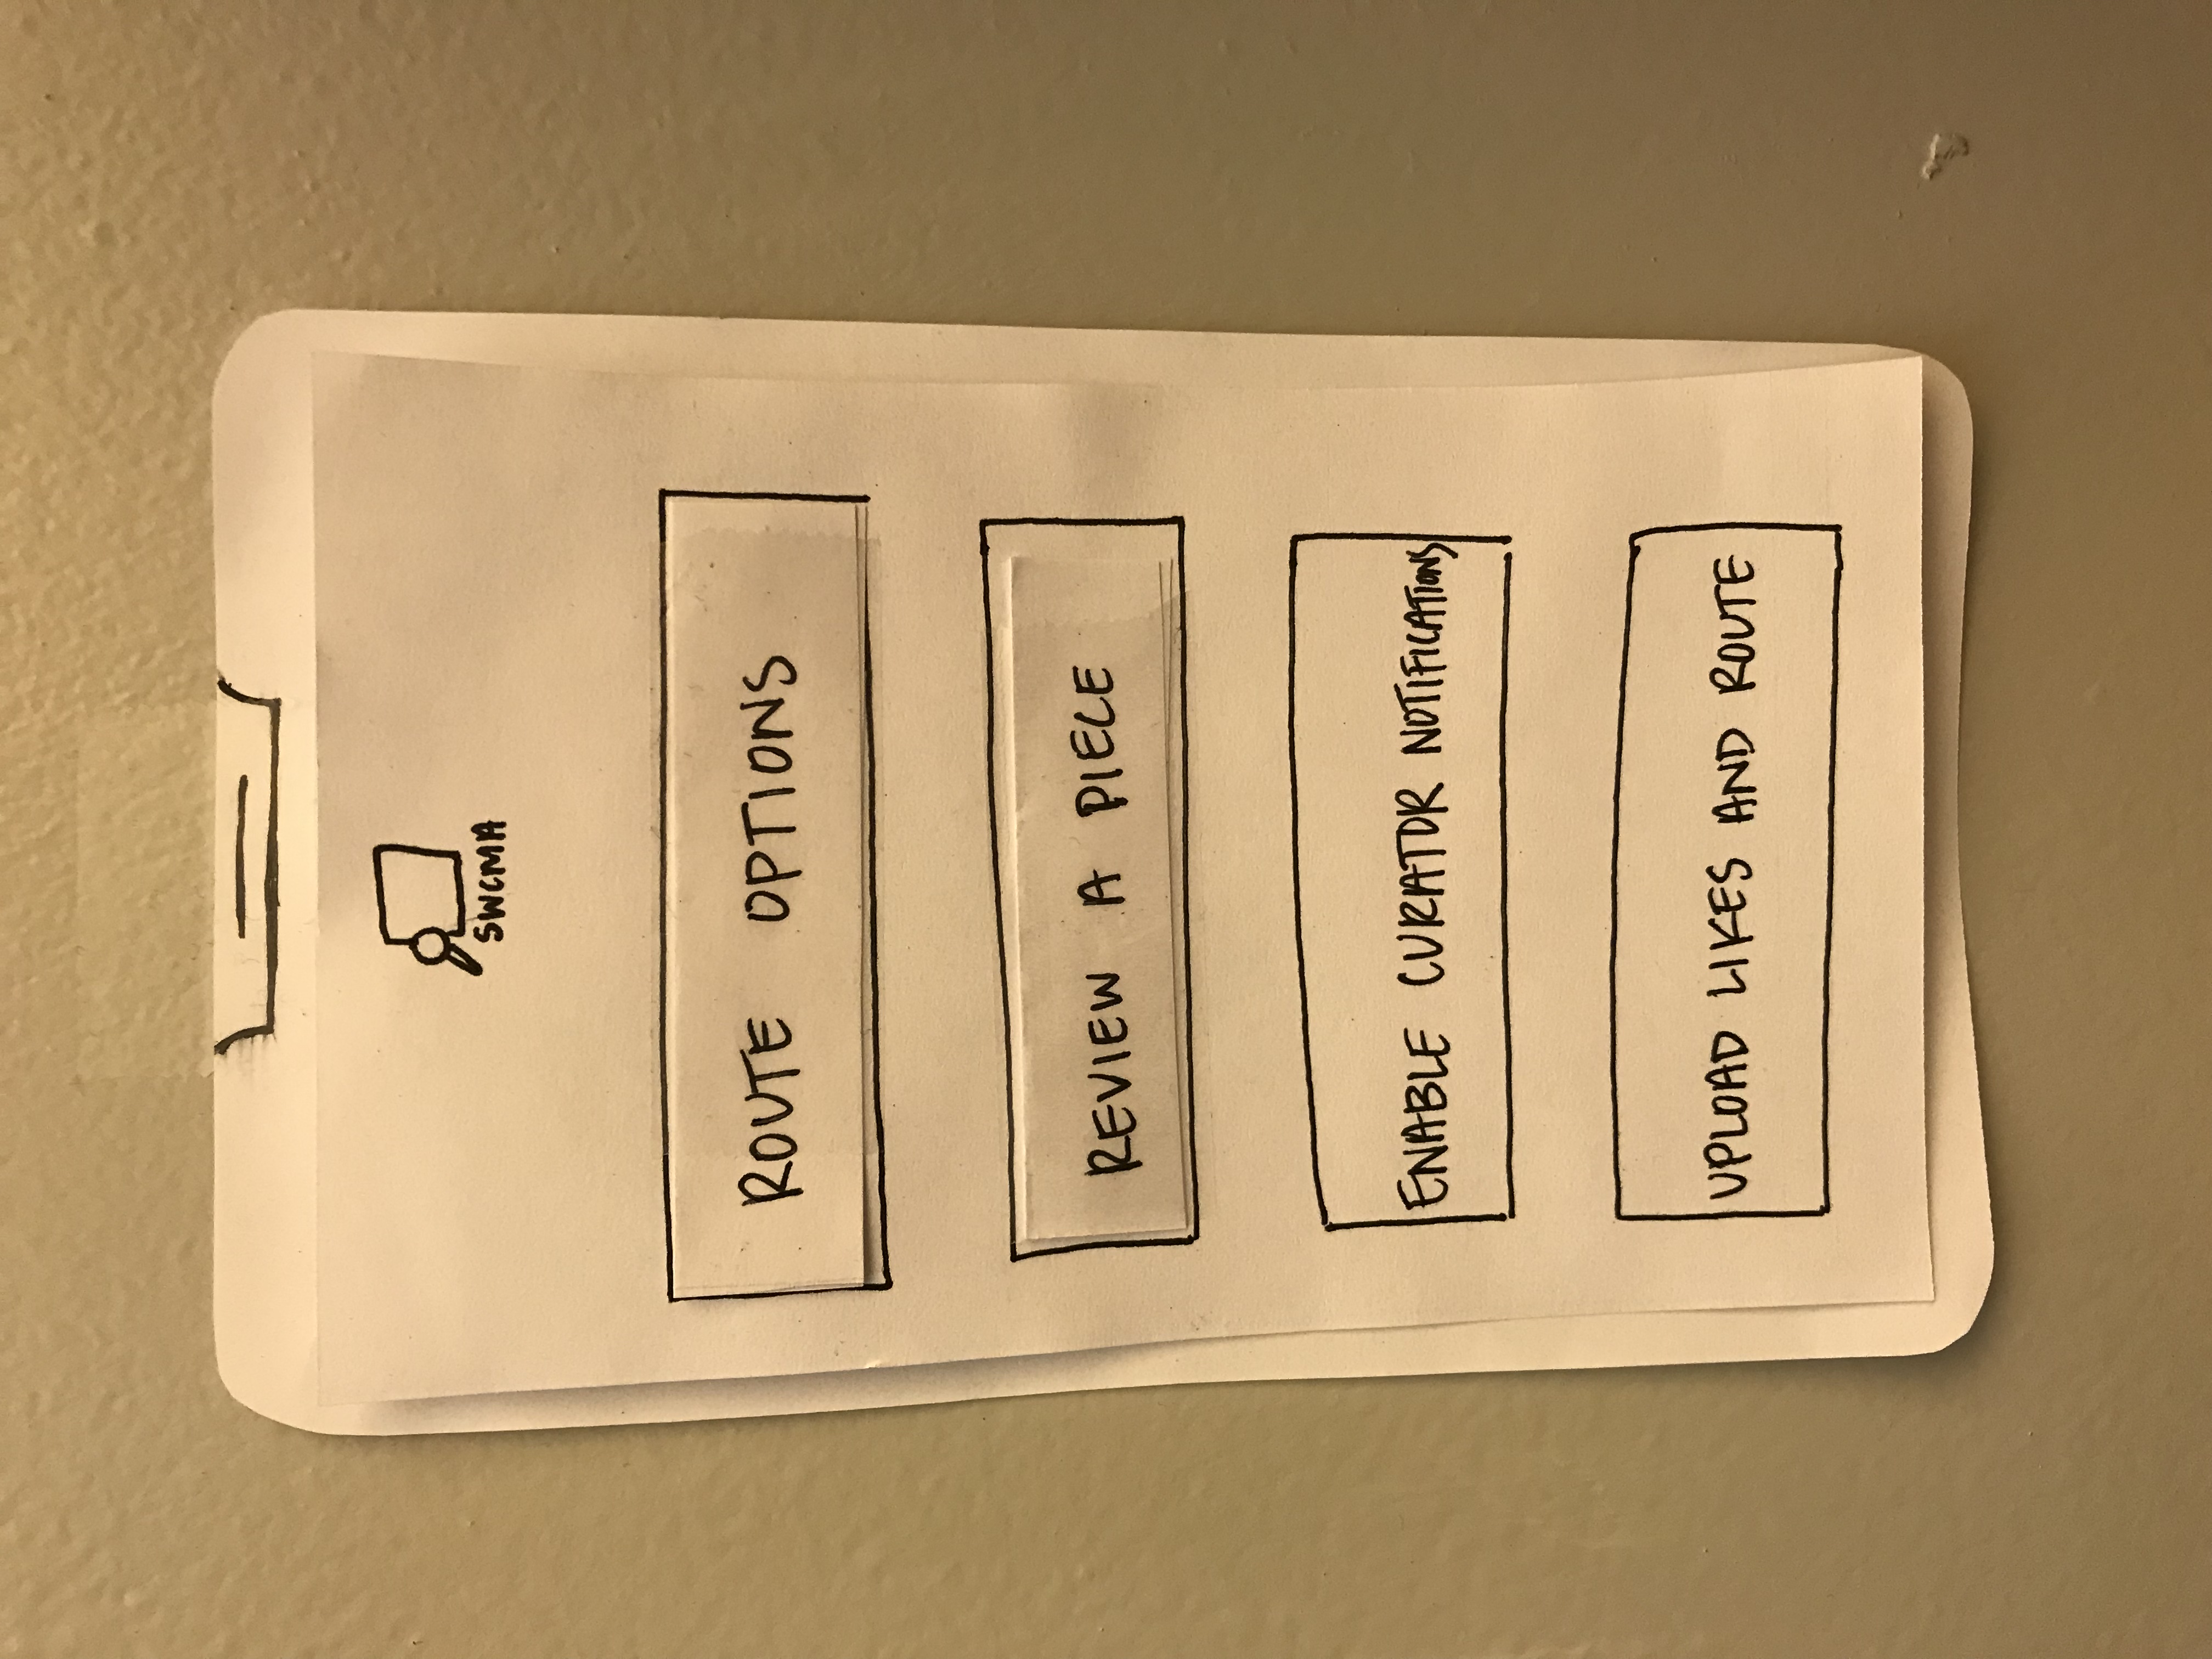 SWCMA
ROUTE OPTIONS
REVIEW A PIECE
ENABLE CURATOR NOTIFICATIONS
UPLOAD LIKES AND ROUTE